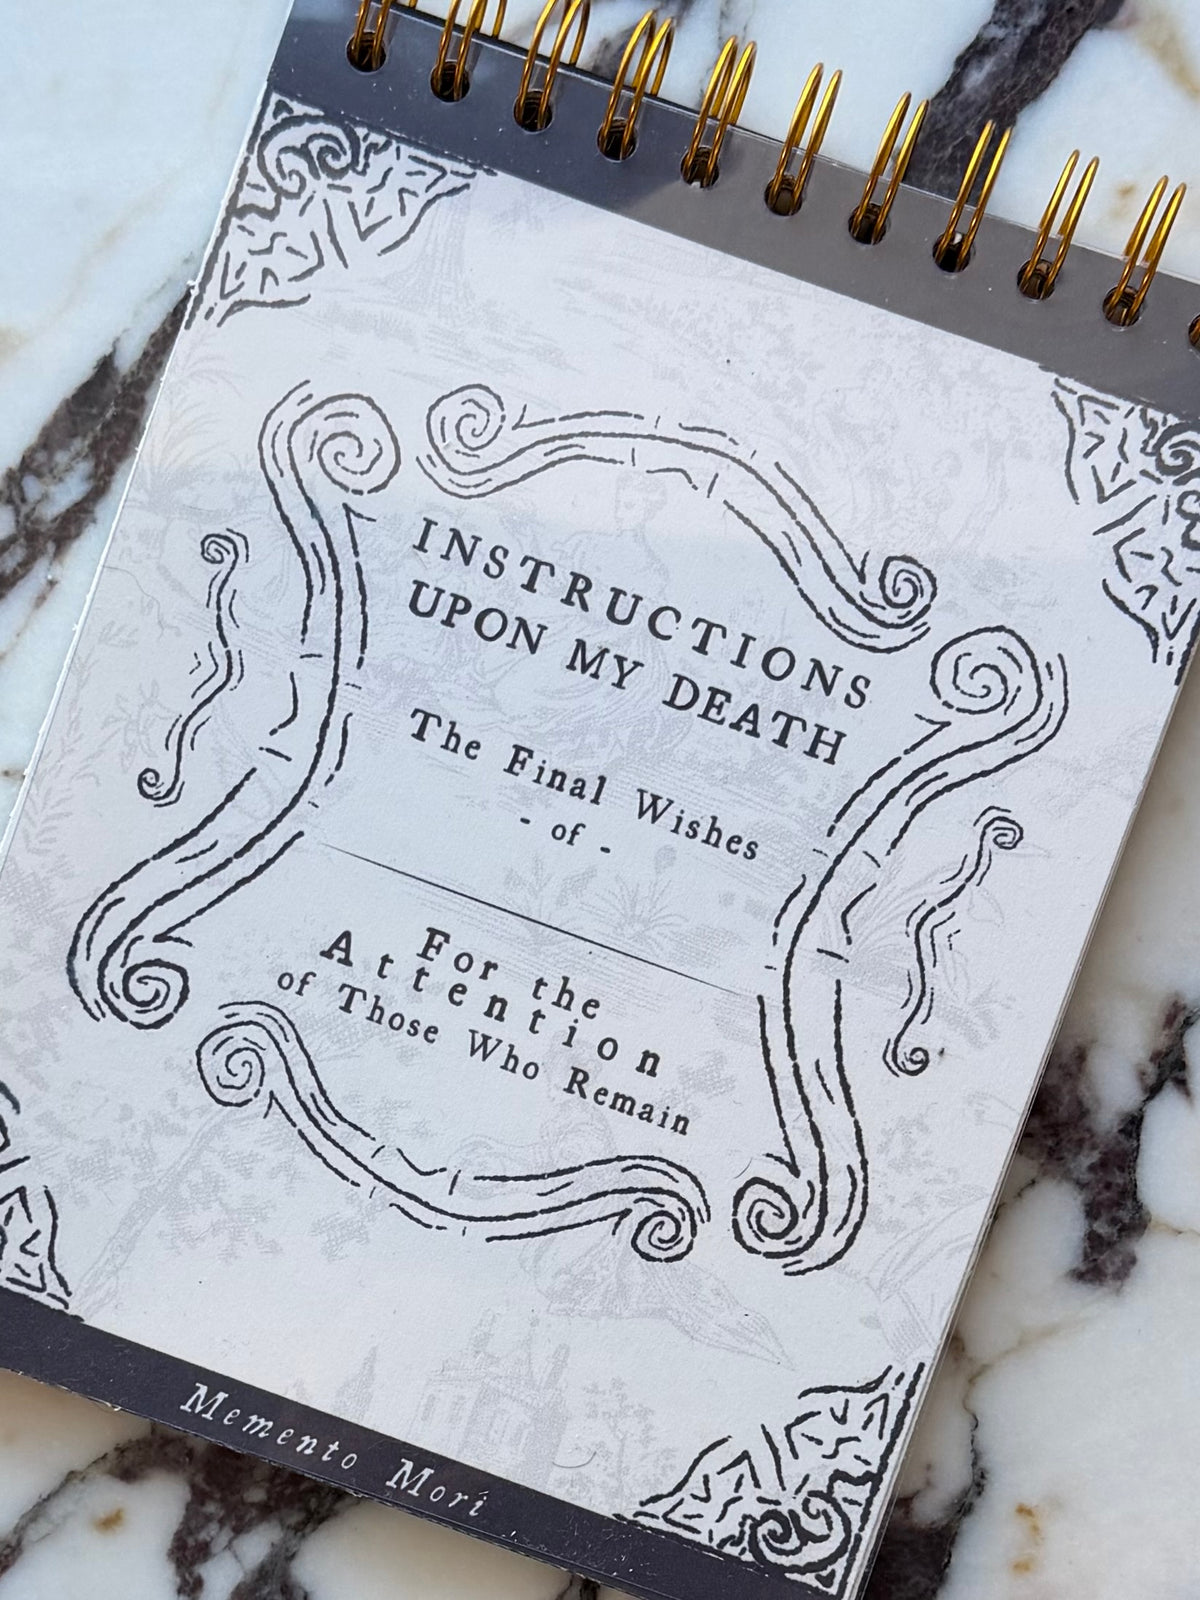 INSTRUCTIONS
UPON MY DEATH
The Final Wishes
- of -
For the
Attention
of Those Who Remain
Memento Mori